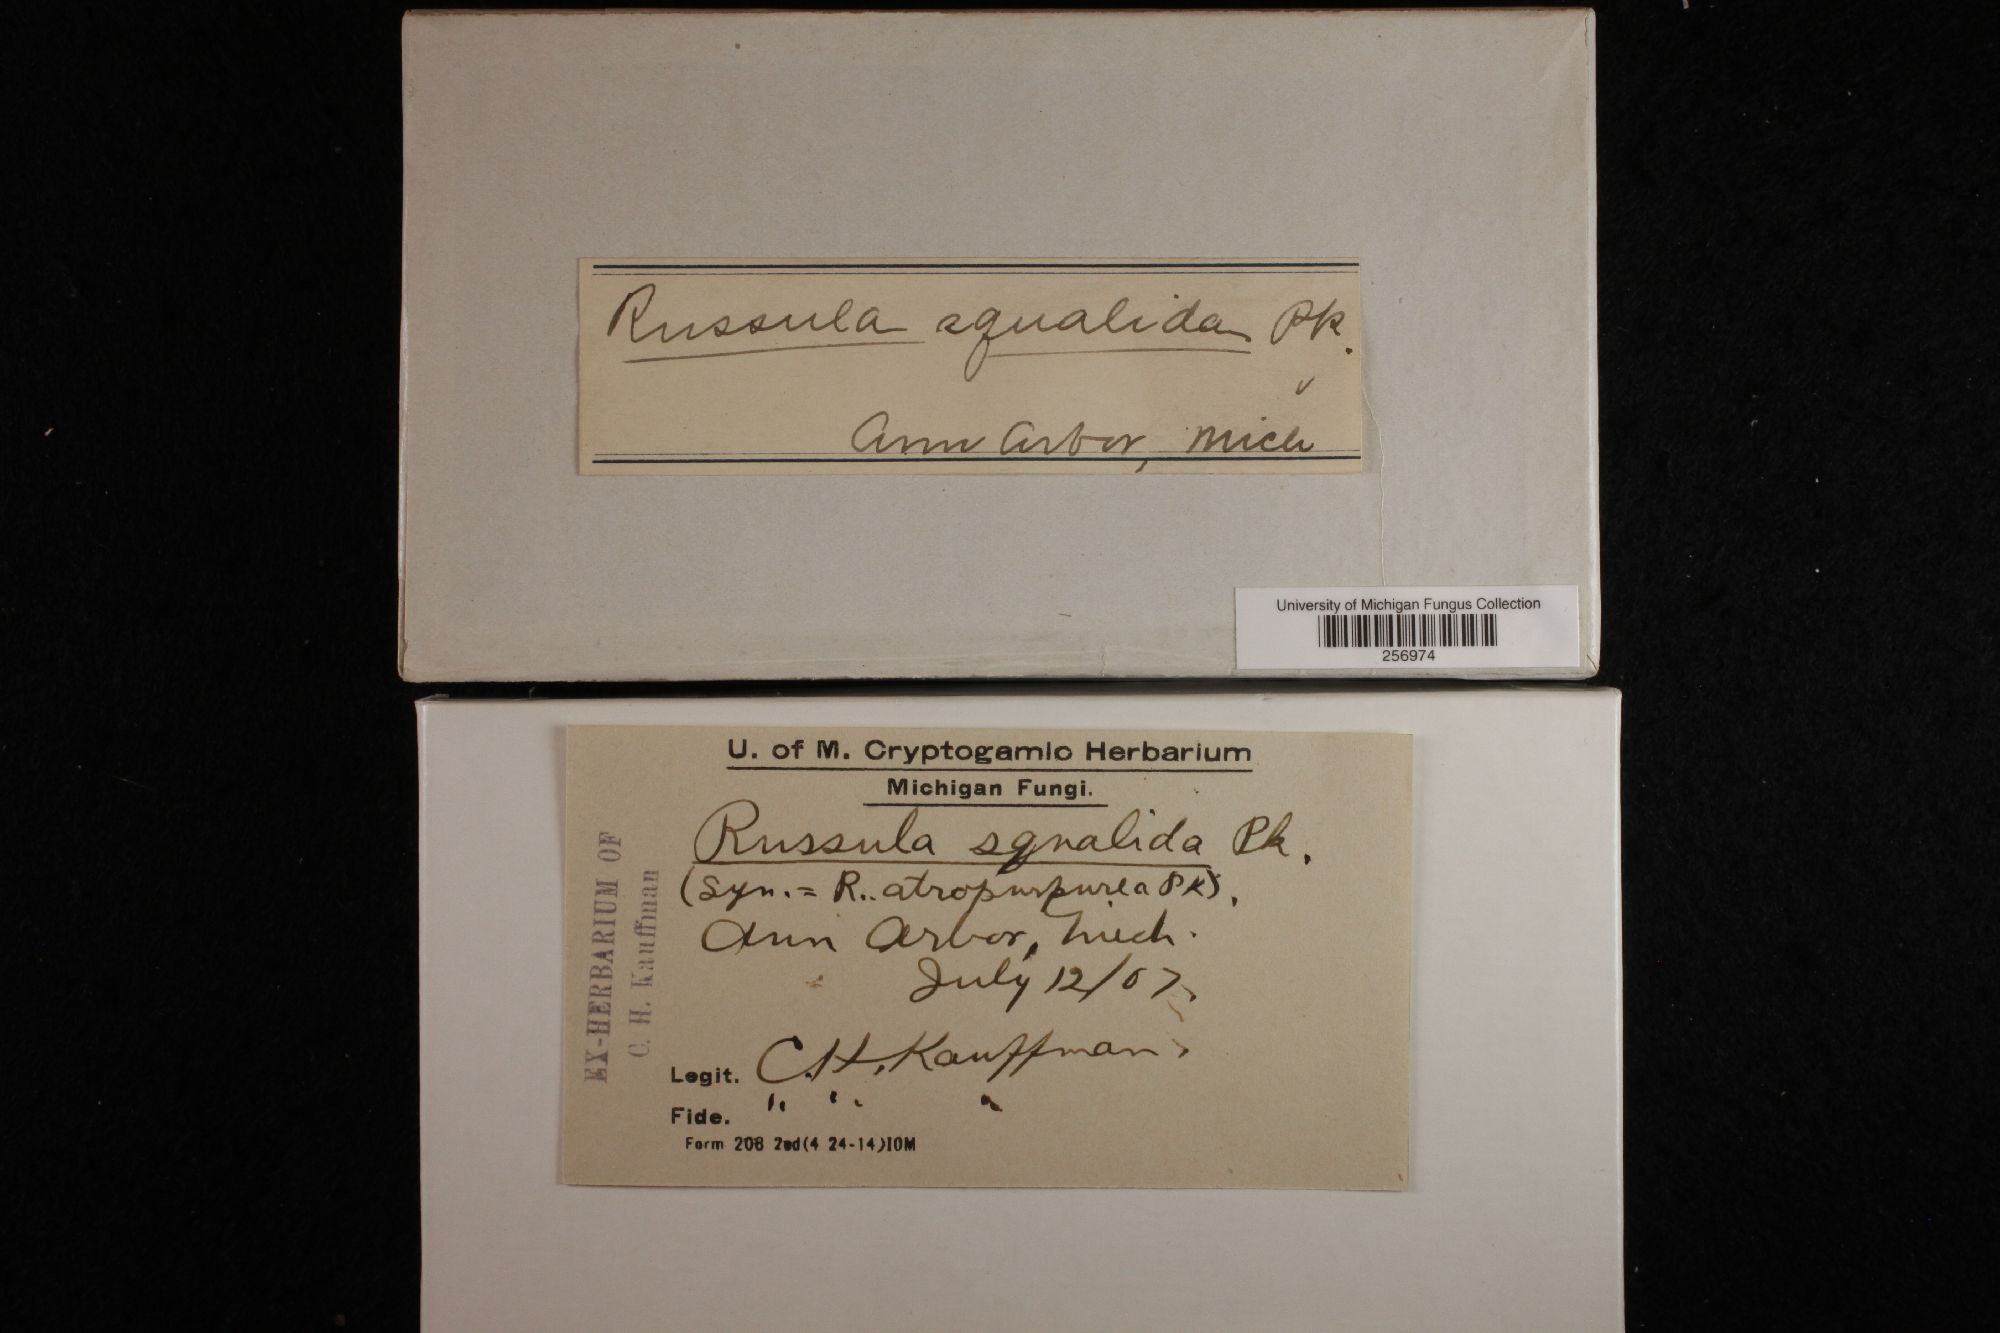 Russula squalida Pk.
Ann Arbor, Mich
University of Michigan Fungus Collection
256974
U. of M. Cryptogamic Herbarium
Michigan Fungi.
Russula squalida Pk.
(Syn. = R.. atropurpurea Pk).
Ann Arbor, Mich.
July 12/07.
Legit. C.H. Kauffman.
Fide. " " "
Form 208 2nd(4 24-14)10M
EX-HERBARIUM OF
C. H. Kauffman